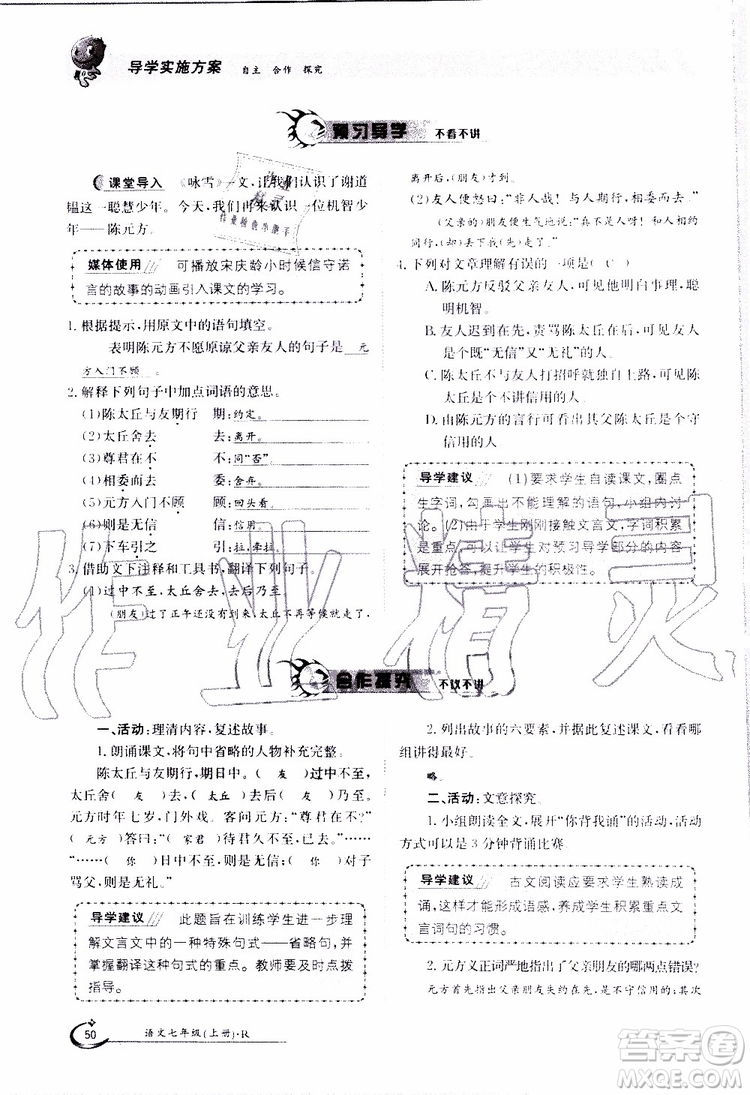 导学实施方案 自主 合作 探究
预习导学 不看不讲
课堂导入 《咏雪》一文,让我们认识了谢道
韫这一聪慧少年。今天,我们再来认识一位机智少
年——陈元方。
媒体使用 可播放宋庆龄小时候信守诺
言的故事的动画引入课文的学习。
1. 根据提示,用原文中的语句填空。
表明陈元方不愿原谅父亲友人的句子是 元
方入门不顾 。
2. 解释下列句子中加点词语的意思。
(1)陈太丘与友期行 期:约定。
(2)太丘舍去 去:离开。
(3)尊君在不 不:同“否”。
(4)相委而去 委:舍弃。
(5)元方入门不顾 顾:回头看。
(6)则是无信 信:信用。
(7)下车引之 引:拉,牵拉。
3. 借助文下注释和工具书,翻译下列句子。
(1)过中不至,太丘舍去,去后乃至。
(朋友)过了正午还没有到,太丘不再等候就离开了,
离开后,(朋友)才到。
(2)友人便怒曰:“非人哉!与人期行,相委而去。”
(父亲的)朋友便生气地说:“真不是人啊!和别人约好同行,
却丢下我走(先)走了。”
4. 下列对文章理解有误的一项是( C )
A. 陈元方反驳父亲友人,可见他明白事理,聪
明机智。
B. 友人迟到在先,责骂陈太丘在后,可见他是
一个既“无信”又“无礼”的人。
C. 陈太丘不与友人打招呼就独自上路,可见陈
太丘是个不讲信用的人。
D. 由陈元方的言行可看出其父陈太丘是个守
信用的人
导学建议 (1)要求学生自读课文,圈点
生字词,勾画出不能理解的语句,小组内讨
论。(2)由于学生刚刚接触文言文,字词积累
是重点,可以让学生对预习导学部分的内容
展开抢答,提升学生的积极性。
合作探究 不议不讲
一、活动:理清内容,复述故事。
1. 朗诵课文,将句中省略的人物补充完整。
陈太丘与友期行,期日中。( 友 )过中不至,
太丘舍( 友 )去,( 太丘 )去后( 友 )乃至。
元方时年七岁,门外戏。客问元方:“尊君在不?”
( 元方 )答曰:“( 家君 )待君久不至,已去。”……
“……( 你 )日中不至,则是无信;( 你 )对子
骂父,则是无礼。”
导学建议 此题旨在训练学生进一步理
解文言文中的一种特殊句式——省略句,并
掌握翻译这种句式的重点。教师要及时点拨
指导!
2. 列出故事的六要素,并据此复述课文,看看哪
组讲得最好。
略。
二、活动:文意探究。
1. 小组朗读全文,展开“你背我诵”的活动,活动
方式可以是 3 分钟背诵比赛
导学建议 古文阅读应要求学生熟读成
诵,这样才能形成语感,养成学生积累重点文
言词句的习惯。
2. 元方义正词严地指出了父亲朋友的哪两点错误?
元方一是针对父亲朋友失约而发,认为父亲朋友与
50 语文七年级(上册)·R
作业精灵
答案圈